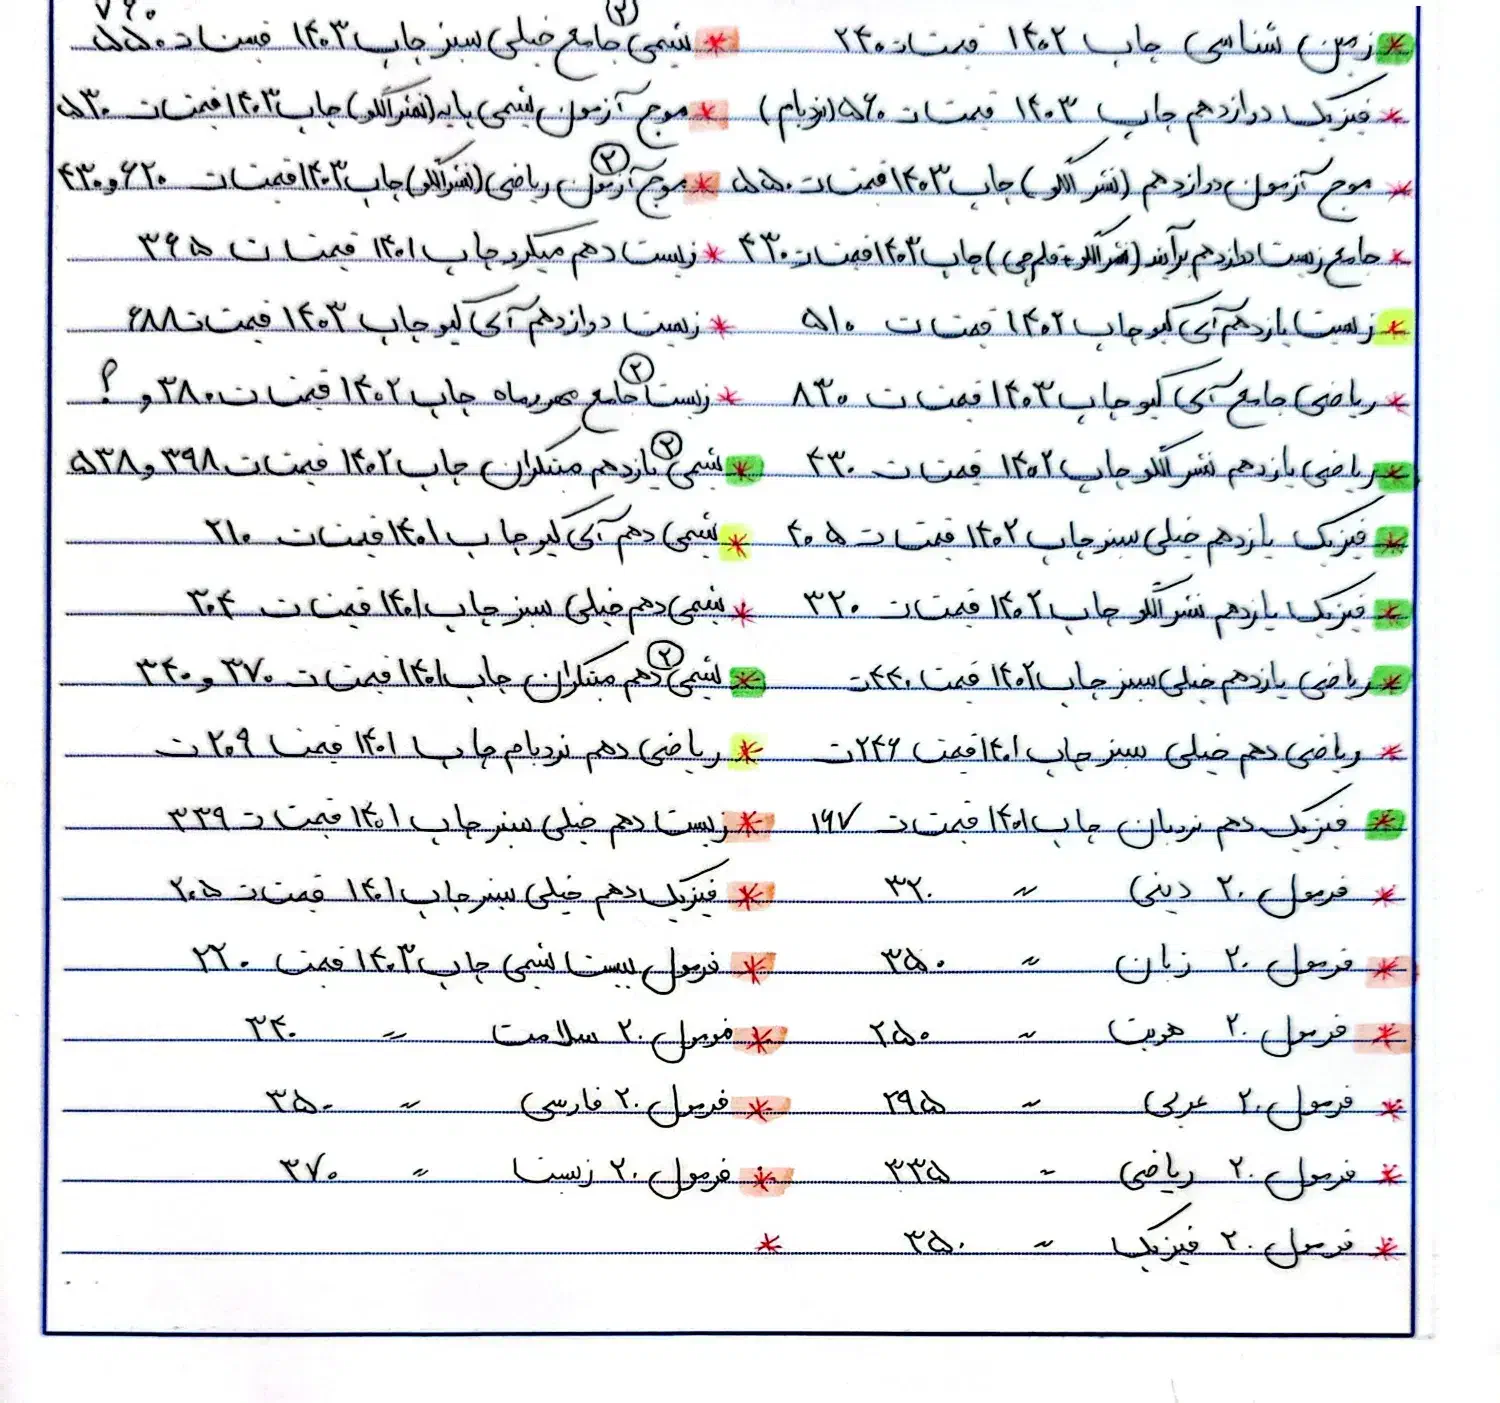 * زمین شناسی چاپ ۱۴۰۲ قیمت ت ۲۴۰
* فیزیک دوازدهم چاپ ۱۴۰۳ قیمت ت ۵۶۰ (نردبام)
* موج آزمون دوازدهم (نشر الگو) چاپ ۱۴۰۳ قیمت ت ۵۵۰
* جامع زیست دوازدهم برآیند (نشر الگو + قلم چی) چاپ ۱۴۰۳ قیمت ت ۴۳۰
* زیست یازدهم آی کیو چاپ ۱۴۰۲ قیمت ت ۵۱۰
* ریاضی جامع آی کیو چاپ ۱۴۰۳ قیمت ت ۸۳۰
* ریاضی یازدهم نشر الگو چاپ ۱۴۰۲ قیمت ت ۴۳۰
* فیزیک یازدهم خیلی سبز چاپ ۱۴۰۲ قیمت ت ۴۰۵
* فیزیک یازدهم نشر الگو چاپ ۱۴۰۲ قیمت ت ۳۲۰
* ریاضی یازدهم خیلی سبز چاپ ۱۴۰۲ قیمت ۴۴۰ ت
* ریاضی دهم خیلی سبز چاپ ۱۴۰۱ قیمت ۲۴۶ ت
* فیزیک دهم نردبان چاپ ۱۴۰۱ قیمت ت ۱۹۷
* فرمول ۲۰ دینی " ۳۲۰
* فرمول ۲۰ زبان " ۳۵۰
* فرمول ۲۰ هویت " ۲۵۰
* فرمول ۲۰ عربی " ۲۹۵
* فرمول ۲۰ ریاضی " ۳۳۵
* فرمول ۲۰ فیزیک " ۳۵۰
۷۶۰
* شیمی (۲) جامع خیلی سبز چاپ ۱۴۰۳ قیمت ت ۵۵۰
* موج آزمون شیمی پایه (نشر الگو) چاپ ۱۴۰۳ قیمت ت ۵۳۰
* موج آزمون (۲) ریاضی (نشر الگو) چاپ ۱۴۰۳ قیمت ت ۶۲۰ و ۴۳۰
* زیست دهم میکرو چاپ ۱۴۰۱ قیمت ت ۳۶۵
* زیست دوازدهم آی کیو چاپ ۱۴۰۳ قیمت ت ۶۸۸
* زیست (۲) جامع مهروماه چاپ ۱۴۰۲ قیمت ت ۳۸۰ و ؟
* شیمی (۲) یازدهم مبتکران چاپ ۱۴۰۲ قیمت ت ۳۹۸ و ۵۳۸
* شیمی دهم آی کیو چاپ ۱۴۰۱ قیمت ت ۲۱۰
* شیمی دهم خیلی سبز چاپ ۱۴۰۱ قیمت ت ۳۰۴
* شیمی (۲) دهم مبتکران چاپ ۱۴۰۱ قیمت ت ۳۷۰ و ۳۴۰
* ریاضی دهم نردبام چاپ ۱۴۰۱ قیمت ۲۰۹ ت
* زیست دهم خیلی سبز چاپ ۱۴۰۱ قیمت ت ۳۳۹
* فیزیک دهم خیلی سبز چاپ ۱۴۰۱ قیمت ت ۲۰۵
* فرمول بیست شیمی چاپ ۱۴۰۳ قیمت ۲۲۰
* فرمول ۲۰ سلامت " ۳۴۰
* فرمول ۲۰ فارسی " ۳۵۰
* فرمول ۲۰ زیست " ۳۷۰
*